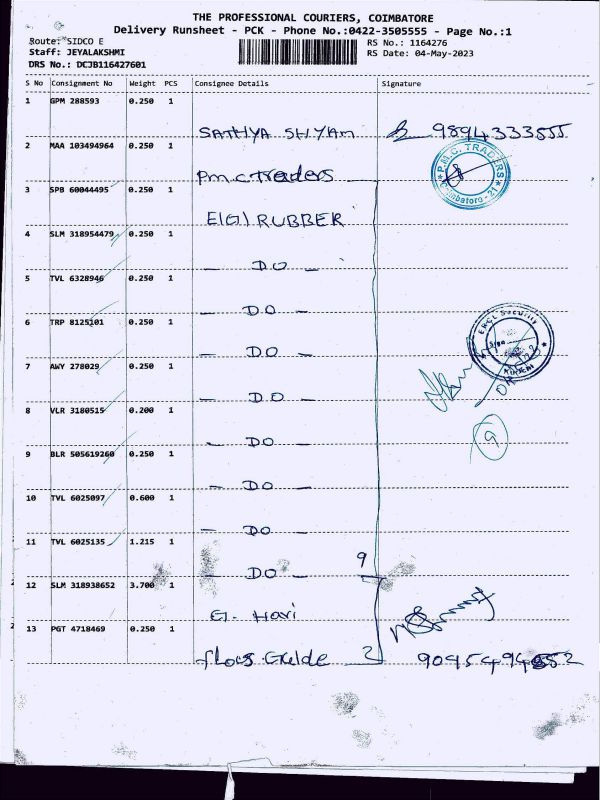 THE PROFESSIONAL COURIERS, COIMBATORE
Delivery Runsheet - PCK - Phone No.:0422-3505555 - Page No.:1
Route: SIDCO E
Staff: JEYALAKSHMI
DRS No.: DCJB116427601
RS No.: 1164276
RS Date: 04-May-2023
S No Consignment No Weight PCS Consignee Details Signature
1 GPM 288593 0.250 1
SATHYA SHYAM 9894333555
2 MAA 103494964 0.250 1
P.m.c. Traders
P.M.C. TRADERS
Coimbatore - 21
3 SPB 60044495 0.250 1
E(G) RUBBER
4 SLM 318954479 0.250 1
— DO —
5 TVL 6328946 0.250 1
— DO —
6 TRP 8125101 0.250 1
— DO —
Security
Sign
7 AWY 278029 0.250 1
— DO —
8 VLR 3180515 0.200 1
— DO —
9
9 BLR 505619260 0.250 1
— DO —
10 TVL 6025097 0.600 1
— DO —
11 TVL 6025135 1.215 1
— DO — 9
12 SLM 318938652 3.700 1
G. Hari
13 PGT 4718469 0.250 1
2